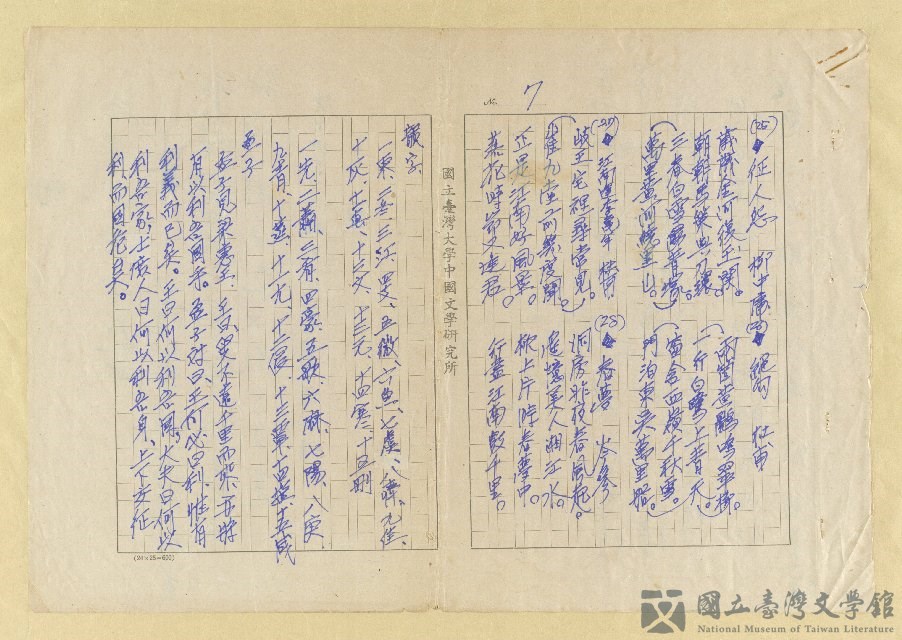 No. 7
(25) 征人怨 柳中庸
歲歲金河復玉關。
朝朝馬策與刀環
三春白雪歸青塚
萬里黃河繞黑山。
絕句 杜甫
兩個黃鸝鳴翠柳。
一行白鷺上青天。
窗含西嶺千秋雪。
門泊東吳萬里船。
江南逢李龜年 杜甫
岐王宅裡尋常見。
崔九堂前幾度聞
正是江南好風景。
落花時節又逢君
(28) 春夢 岑參
洞房昨夜春風起。
遙憶美人湘江水。
枕上片時春夢中
行盡江南數千里。
國立臺灣大學中國文學研究所
韻字
一東、二冬、三江、四支、五微、六魚、七虞、八齊、九佳、
十灰、十一真、十二文、十三元、十四寒、十五刪
一先、二蕭、三肴、四豪、五歌、六麻、七陽、八庚、
九青、十蒸、十一尤、十二侵、十三覃、十四鹽、十五咸
孟子
孟子見梁惠王、王曰、叟不遠千里而來、亦將
有以利吾國乎。孟子對曰、王何必曰利、惟有
利義而已矣。王曰何以利吾國、大夫曰何以
利吾家、士庶人曰何以利吾身、上下交征
利而國危矣。
(24×25=600)
國立臺灣文學館
National Museum of Taiwan Literature